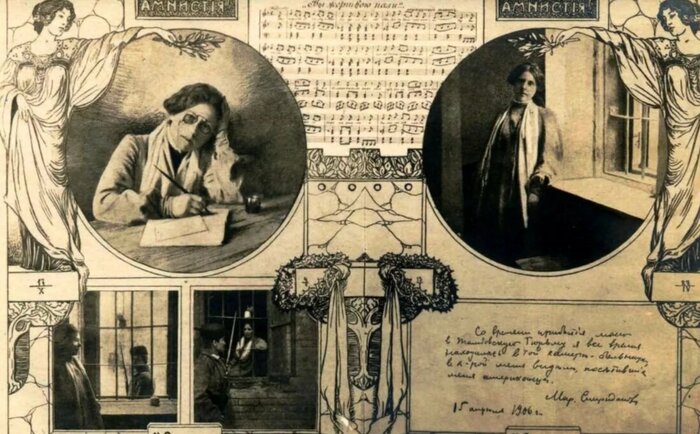 АМНИСТІЯ!
„Вы жертвою пали..."
АМНИСТІЯ!
Со времени прибытія моего
в Тамбовскую Тюрьму я все время
нахожусь в той камере-больнице,
в к-рой меня видели, посетившие
меня американцы.
Мар. Спиридонова
15 апреля 1906 г.